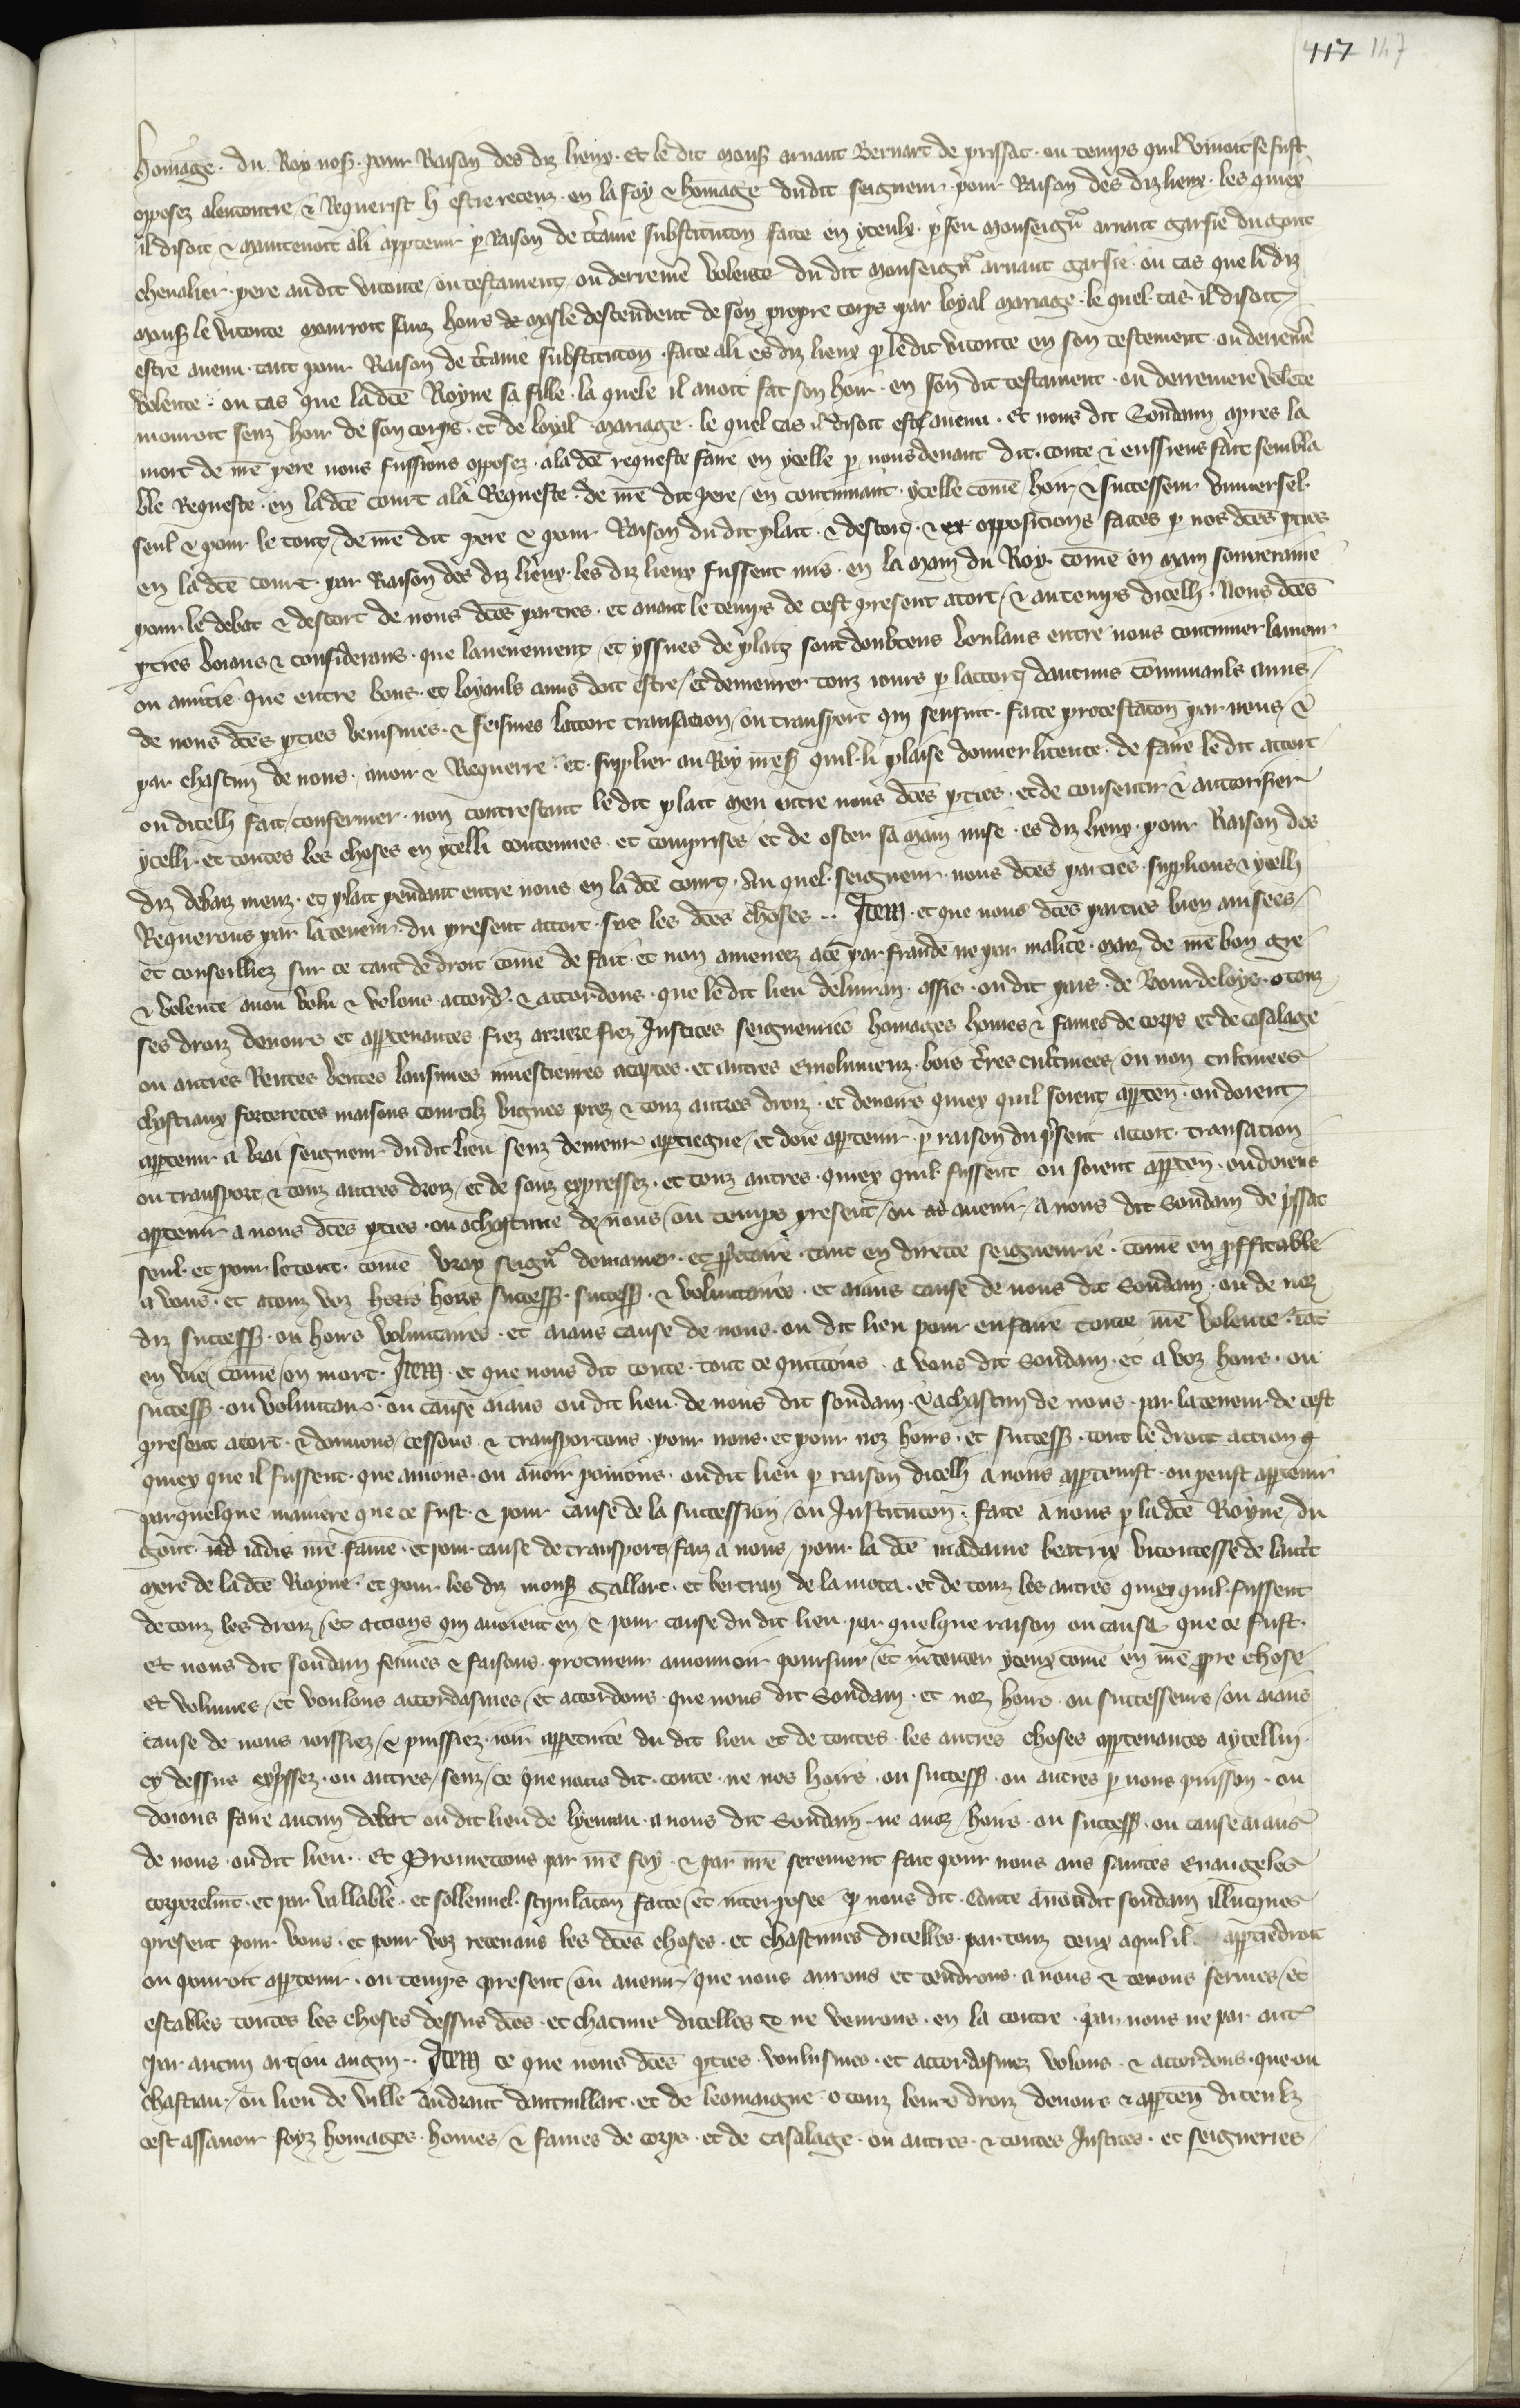 417 147
homage . du Roy nos̃ . pour Raison des diz lieux . Et le dit mons̃ arnaut Bernart de prissac . ou temps quil vivoit se fust
opposez alencontre / & Requerist li estre receuz . en la foy & homage dudit seigneur . pour Raison des diz lieux . les quiex
il disoit & maintenoit a li app̃tenir p̃ Raison de c̃taine substituc̃on faite en yceulx . p̃ feu monseign̄r arnaut garsie du gout
chevalier . pere au dit viconte / ou testament / ou derrenie volente du dit monseign̄r arnaut garsie . ou cas que li diz
mons̃ le viconte mourroit sanz hoirs de masle descendent de son propre corps par loyal mariage . le quel cas il disoit
estre avenu . tant pour Raison de c̃taine substituc̃on . faite a li es diz lieux p̃ le dit viconte en son testement . ou derreniẽ
volente . ou cas que lad̃ce Royne sa fille . la quele il avoit fat son hoir . en son dit testament . ou derreniere volẽte
mouroit senz hoir de son corps . et de loyal mariage . le quel cas il disoit estr̃ avenu . Et nous dit Soudam apres la
mort de n̄re pere nous fussions opposez . a la d̃ce requeste faire en ycelle p̃ nous devant dit . conte & eussiens fait sembla
ble Requeste . en lad̃ce court a la Requeste . de n̄re dit pere / en continuant . ycelle com̃e / hoir & successeur universel .
seul & pour le tout / de n̄re dit pere & pour Raison du dit plait . & descort . & opposicions faites p̃ nos d̃ces p̃ties
en lad̃ce court . par Raison des diz lieux . les diz lieux fussent mis . en la main du Roy . com̃e en main souveraine
pour le debat & descort de nous d̃ces parties . et avant le temps de cest present acort / & au temps dicelli . Nous d̃ces
p̃ties voians & considerans . que lavenement / et yssues de plaiz sont doubteus voulans entre nous continuer lamour
ou amitie que entre bons . et loyauls amis doit estre / et demeurer touz iours p̃ laccort daucuns com̃unauls amis /
de nous d̃ces p̃ties venismes . & feismes laccort transacion / ou transport qui sensuit . faite protestac̃on par nous / &
par chascun de nous . avoir & Requerre . et . supplier au Roy n̄res̃ quil li plaise donner licence . de faire le dit accort
ou dicelli fait / confermer . non contrestant le dit plait meu entre nous d̃ces p̃ties . et de consentir & auctorisier
ycelli . et toutes les choses en ycelli contenues . et comprises / et de oster sa main mise . es diz lieux . pour Raison des
diz debaz meuz . et plait pendant entre nous en la d̃ce court . Au quel . seigneur . nous d̃ces parties . supplions & ycelli
Requerons par la teneur . du present accort . sur les d̃ces choses .. Item . et que nous d̃ces parties bien avisees /
et conseilliez sur ce tant de droit com̃e de fait . et non amenees a ce par fraude ne par malice . maiz de n̄re bon gre
& volente avon volu & volons accordẽ . & accordons . que le dit lieu de livran . assis . ou dit pais . de Bourdeloys . o touz
ses droiz devoirs et app̃tenances fiez arriere fiez Justices seigneuries homages homes & fames de corps et de casalage
ou autres Rentes ventes lausimes investieures acaptes . et autres emolumenz . bois t̃res cultivees / ou non cultivees
chastiaux forteretes maisons courtilz vignes prez & touz autres droiz . et devoirs quiex quil soient app̃ten̄ . ou doient
app̃tenir a vrai seigneur du dit lieu senz demeur app̃tiegne / et doie app̃tenir . p̃ raison du p̃sent accort . transacion
ou transport / & touz autres droiz / et de souz expressez . et touz autres . quiex quil fussent ou soient app̃ten̄ . ou doiens
app̃tenir a nous d̃ces p̃ties . ou a chascune de / nous / ou temps present / ou avenir / a nous dit Soudam de p̃ssac
seul . et pour le tout . com̃e vray seign̄r demainer . et p̃p̃etaire . tant en directe seigneurie . com̃e en p̃ffitable
a vous . et a touz voz hoirs success̃ . & voluntaires . et aians cause de nous dit Soudam . ou de noz
diz success̃ . ou hoirs voluntaires . et aians cause de nous . ou dit lieu pour en faire toute n̄re volente . tãt
en vie / com̃e / en mort . Item . et que nous dit conte . tout ce quittons . a vous dit Soudam . et a voz hoirs . ou
success̃ . ou voluntair̃ . ou cause aians ou dit lieu . de nous dit soudam . & a chascun de nous . par la teneur de cest
present acort . & donnons / cessons . & transportons . pour nous . et pour noz hoirs . et success̃ . tout le droit action
quiex que il fussent . que avions . ou avoir poions . ou dit lieu p̃ raison dicelli a nous app̃tenist . ou peust app̃tenir
par quelque maniere que ce fust . & pour cause de la succession / ou Instituc̃on . faite a nous p̃ la d̃ce Royne / du
gout . iadis n̄re fame . et pour . cause de transport / faiz a nous / pour . la d̃ce madame beatrix vicontesse de lautrec
mere de la d̃ce Royne . et pour les diz mons̃ gallart . et bertran de la mota . et de touz les autres quiex quil . fussent
de touz les droiz / et accions qui avoient en & pour cause du dit lieu . par quelque raison ou cause que ce fust .
Et nous dit soudam feimes & faisons . procureur amounoir poursuir / et intenter yceux com̃e en n̄re p̃pre chose
Et volumes / et voulons accordasmes / et accordons . que nous dit Soudam . et noz hoirs . ou successeurs / ou aians
cause de nous ioissiez / & puissiez . ioir app̃ecucie du dit lieu et de toutes . les autres choses app̃tenances aycelluy .
cy dessus exp̃ssez . ou autres / senz / ce que nous dit . conte . ne nos hoirs . ou success̃ . ou autres p̃ nous puisson . ou
doions faire aucun debat ou dit lieu de lyvran . a nous dit Soudam . ne a voz / hoirs . ou success̃ . ou cause aians
de nous . ou dit lieu .. Et Promettons par n̄re foy . & par n̄re serement fait pour nous aus saintes Evangeles
corporelm̄t . et par vallable . et sollennel . stipulac̃on faite / et interposee p̃ nous dit . Conte a vou dit soudam illucques
present pour vous . et pour voz recevans les d̃ces choses . et chascunes dicelles . par touz ceux aquil il app̃tiedroit
ou pouroit app̃tenir . ou temps present / ou avenir / que nous aurons et tendrons . a nous & tenons fermes / et
estables toutes les choses dessus d̃ces . et chacune dicelles & ne venrons . en la contre . par nous ne par autr̃
par aucun art / ou angin .. Item ce que nous d̃ces p̃ties voulusmes . et accordasmez volons . & accordons . que ou
chastiau / ou lieu de ville andraut dautvillart . et de leomaigne . o touz leurs droiz devoirs & app̃ten̄ diceulz
cest assavoir foyz homages . homes / & fames de corps . et de casalage . ou autres . & toutes Justices . et seigneries